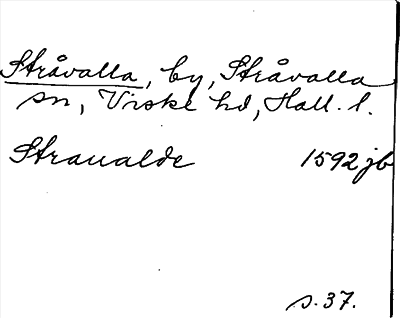 Stråvalla, by, Stråvalla
sn, Viske hd, Hall. l.
Straualde 1592 jb
s. 37.